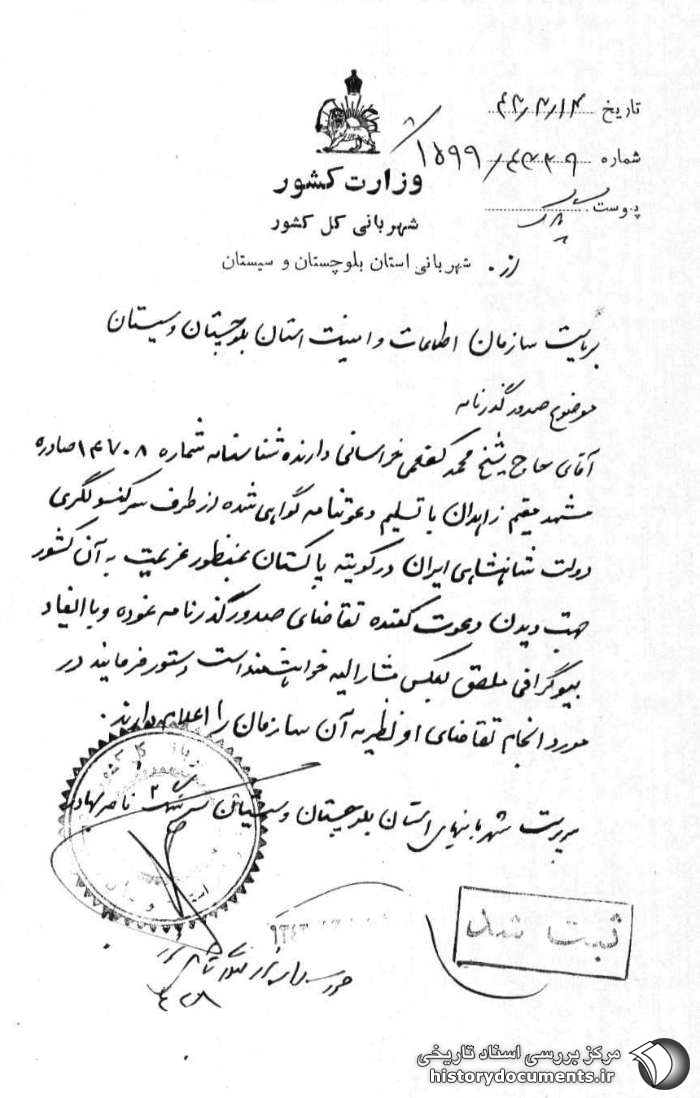 تاریخ ۴۳/۲/۱۴
شماره ۱۵۹۹/
پیوست
وزارت کشور
شهربانی کل کشور
از . شهربانی استان بلوچستان و سیستان
بریاست سازمان اطلاعات و امنیت استان بلوچستان و سیستان
موضوع صدور گذرنامه
آقای حاج شیخ محمد کفعمی خراسانی دارنده شناسنامه شماره ۱۴۷۰۸ صادره
مشهد مقیم زاهدان با تسلیم دعوتنامه گواهی شده از طرف سرکنسولگری
دولت شاهنشاهی ایران در کویته پاکستان بمنظور عزیمت به آن کشور
جهت دیدن دعوت کننده تقاضای صدور گذرنامه نموده و با ایفاد
بیوگرافی ملصق بعکس مشارالیه خواهشمند است دستور فرمایند در
مورد انجام تقاضای او نظریه آن سازمان را اعلام دارند .
سرپرست شهربانیهای استان بلوچستان و سیستان سرهنگ ۲ ناصر بهادر
ثبت شد
مرکز بررسی اسناد تاریخی
historydocuments.ir